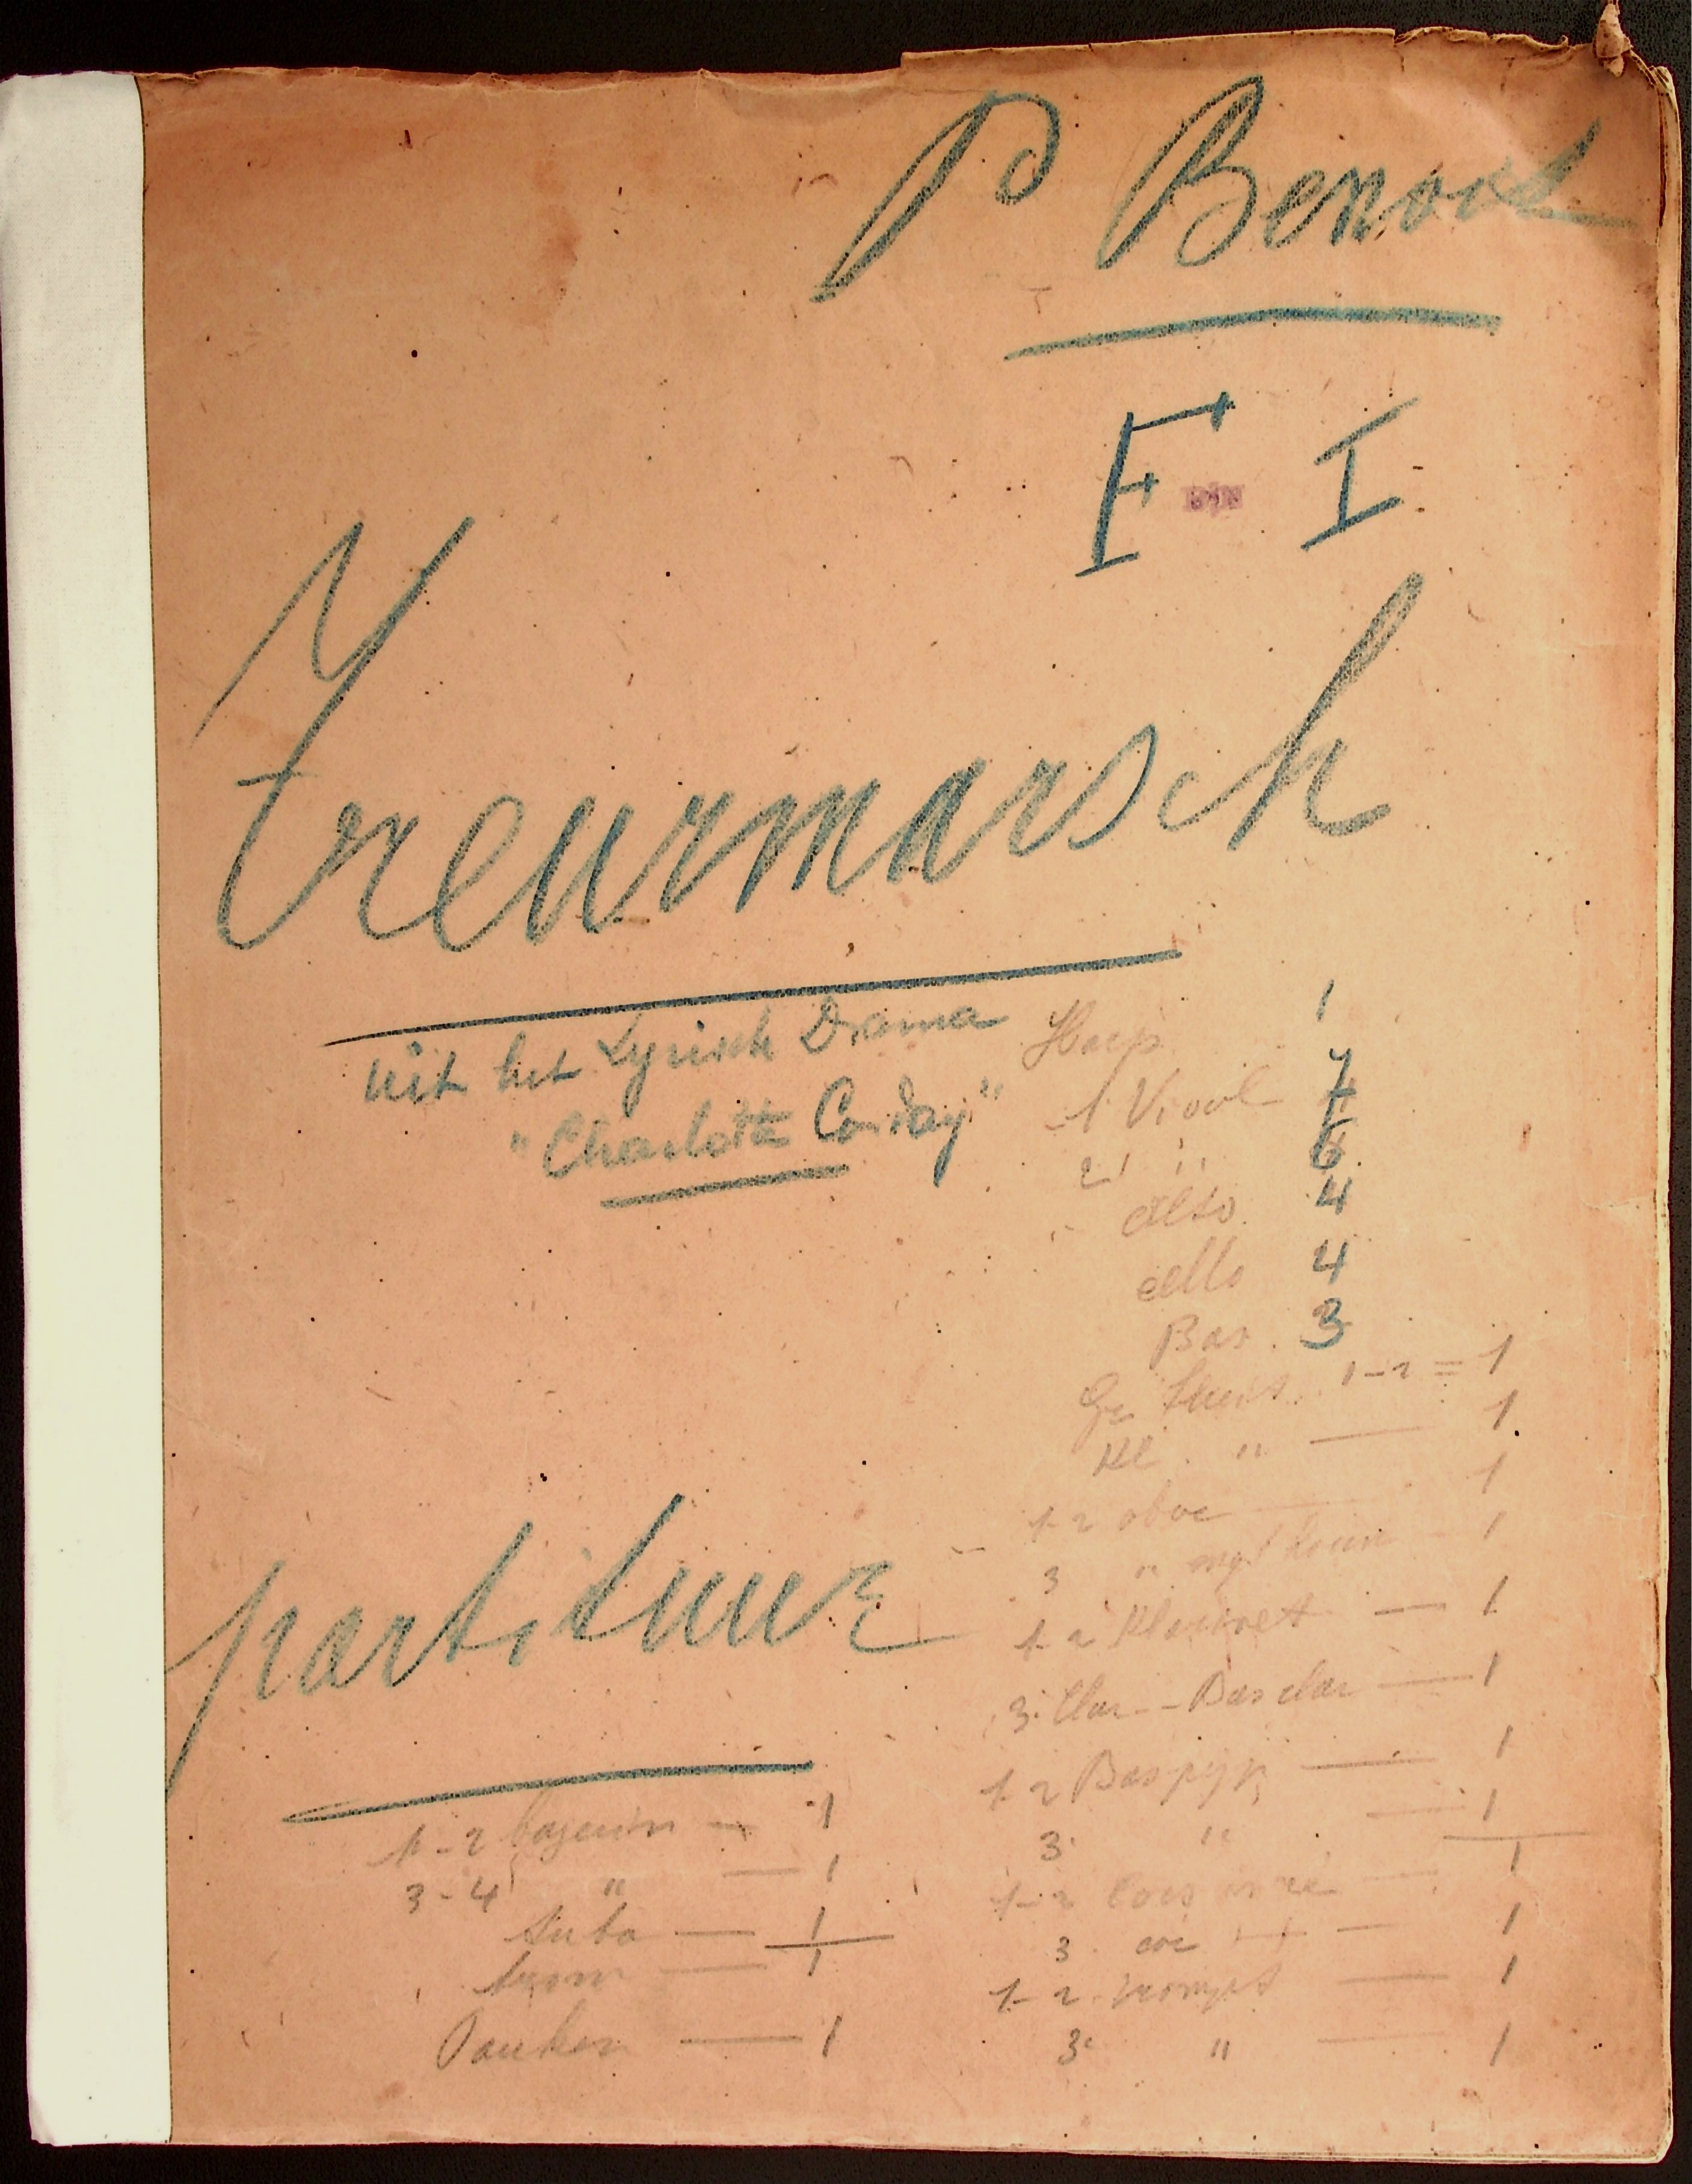 P Benoit
F I
Treurmarsch
Uit het Lyrisch Drama
"Charlotte Corday"
Harp 1
1 Viool 7
2 " 6
alto 4
cello 4
Bas. 3
Gr fluit 1-2 = 1
Kl. " — 1
1-2 oboe — 1
3 " eng. hoorn — 1
1-2 Klarinet — 1
3. Clar - Bas clar — 1
1 2 Baspijp — 1
3 " — 1
1-2 cors — 1
3. cor — 1
1-2. trompet — 1
3 " — 1
partituur
1-2 bazuin — 1
3-4 " — 1
tuba — 1
trom — 1
Pauken — 1